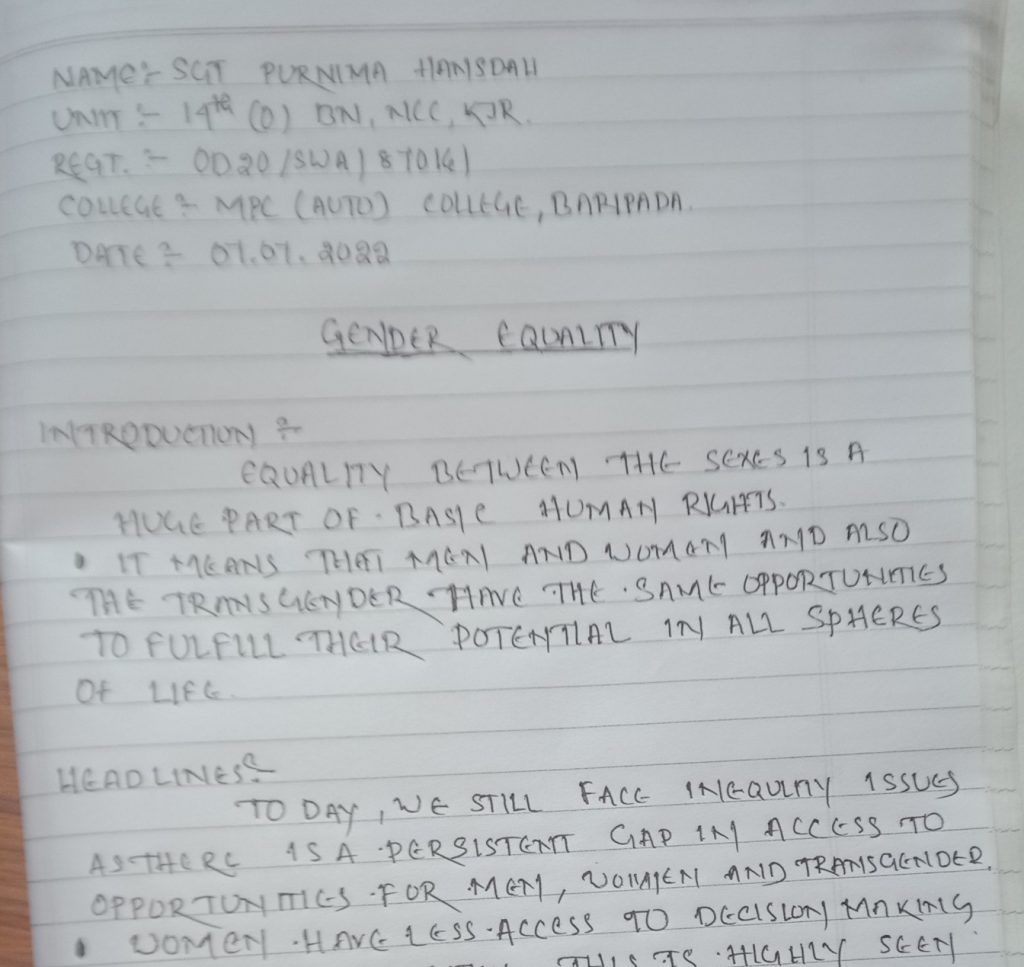 NAME:- SGT PURNIMA HANSDAH
UNIT:- 14th (O) BN, NCC, KJR.
REGT. :- OD20/SWA/870161
COLLEGE:- MPC (AUTO) COLLEGE, BARIPADA.
DATE:- 07.07.2022
GENDER EQUALITY
INTRODUCTION:-
EQUALITY BETWEEN THE SEXES IS A
HUGE PART OF BASIC HUMAN RIGHTS.
• IT MEANS THAT MEN AND WOMEN AND ALSO
THE TRANSGENDER HAVE THE SAME OPPORTUNITIES
TO FULFILL THEIR POTENTIAL IN ALL SPHERES
OF LIFE.
HEADLINES:-
TODAY, WE STILL FACE INEQULITY ISSUES
AS THERE IS A PERSISTENT GAP IN ACCESS TO
OPPORTUNITIES FOR MEN, WOMEN AND TRANSGENDER.
• WOMEN HAVE LESS ACCESS TO DECISION MAKING
THIS IS HIGHLY SEEN